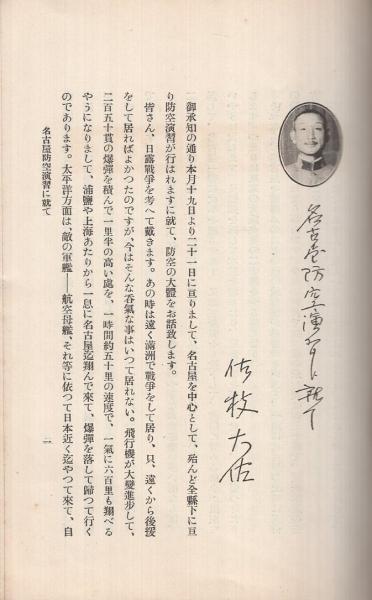 名古屋防空演習に就て
佐枝大佐
御承知の通り本月十九日より二十一日に亘りまして、名古屋を中心として、殆んど全縣下に亘
り防空演習が行はれますに就て、防空の大體をお話致します。
皆さん、日露戰爭を考へて戴きます。あの時は遠く滿洲で戰爭をして居り、只、遠くから後援
をして居ればよかつたのですが、今はそんな呑氣な事はいつて居れない。飛行機が大變進步して、
二百五十貫の爆彈を積んで一里半の高い處を、一時間約五十里の速度で、一氣に六百里も翔べる
やうになりまして、浦鹽や上海あたりから一息に名古屋迄翔んで來て、爆彈を落して歸つて行く
のであります。太平洋方面は、敵の軍艦——航空母艦、それ等に依つて日本近く迄やつて來て、自
名古屋防空演習に就て